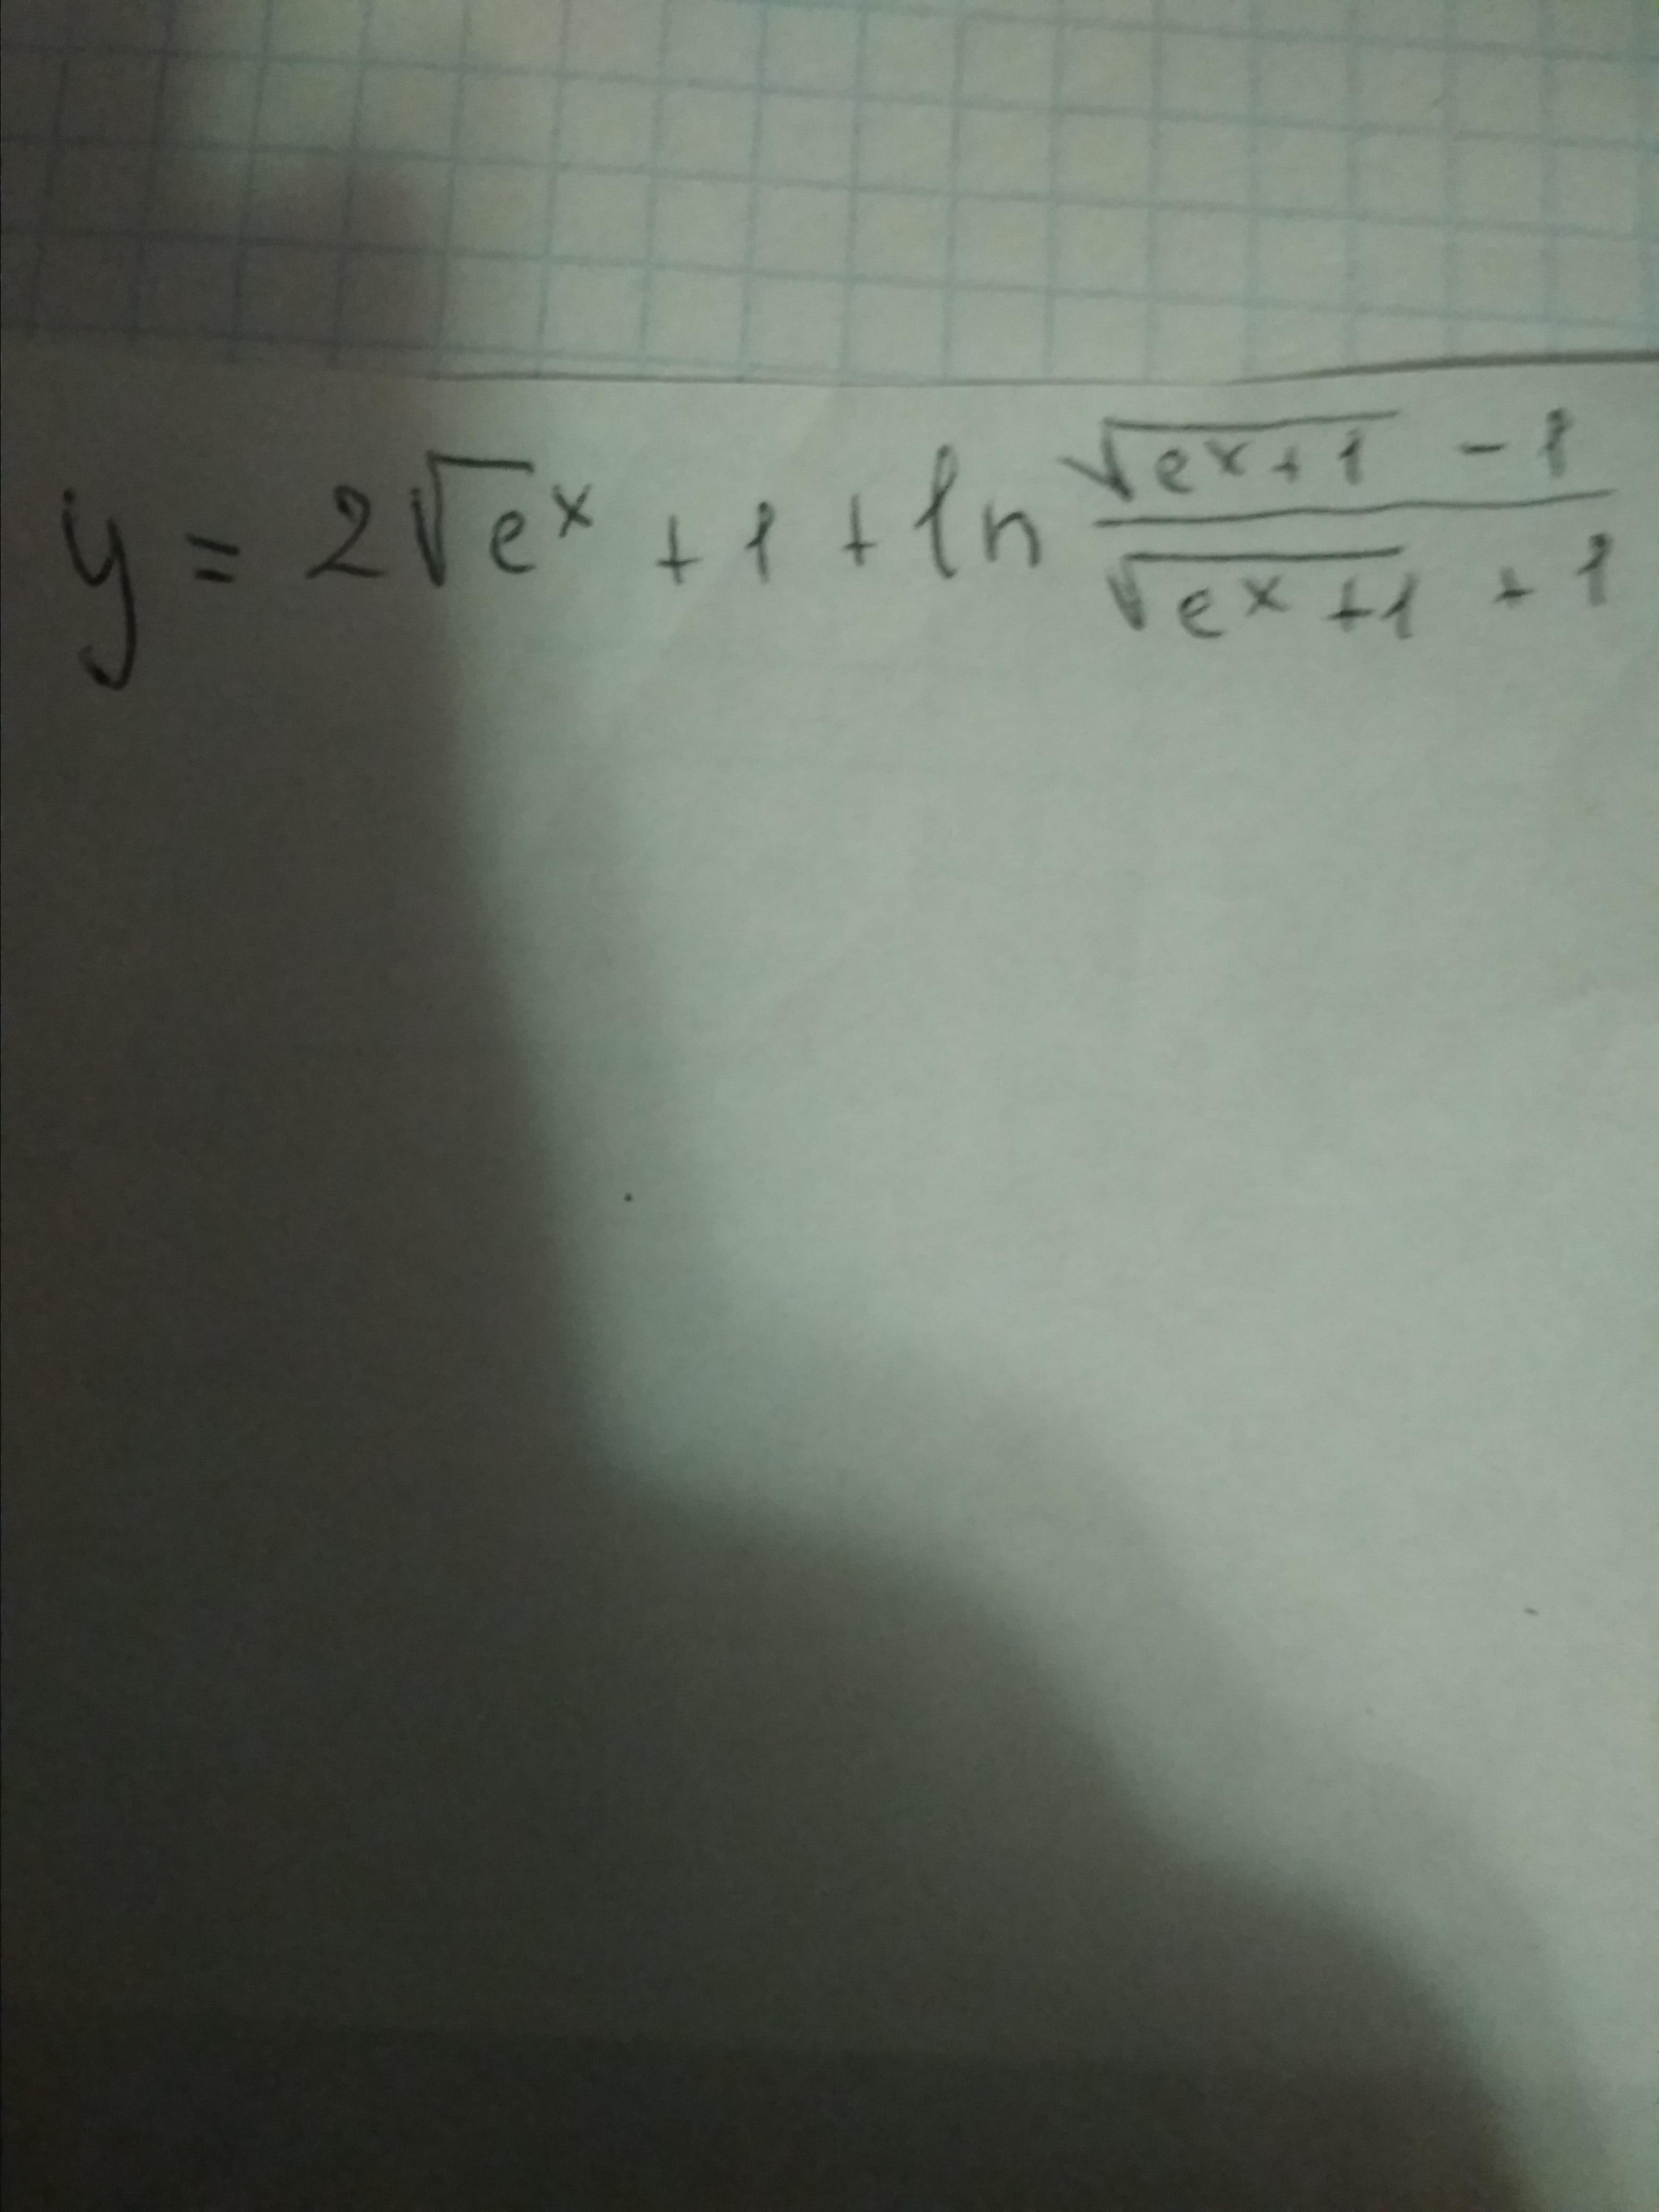 y = 2√e^x + 1 + ln (√(e^x+1) - 1)/(√(e^x+1) + 1)